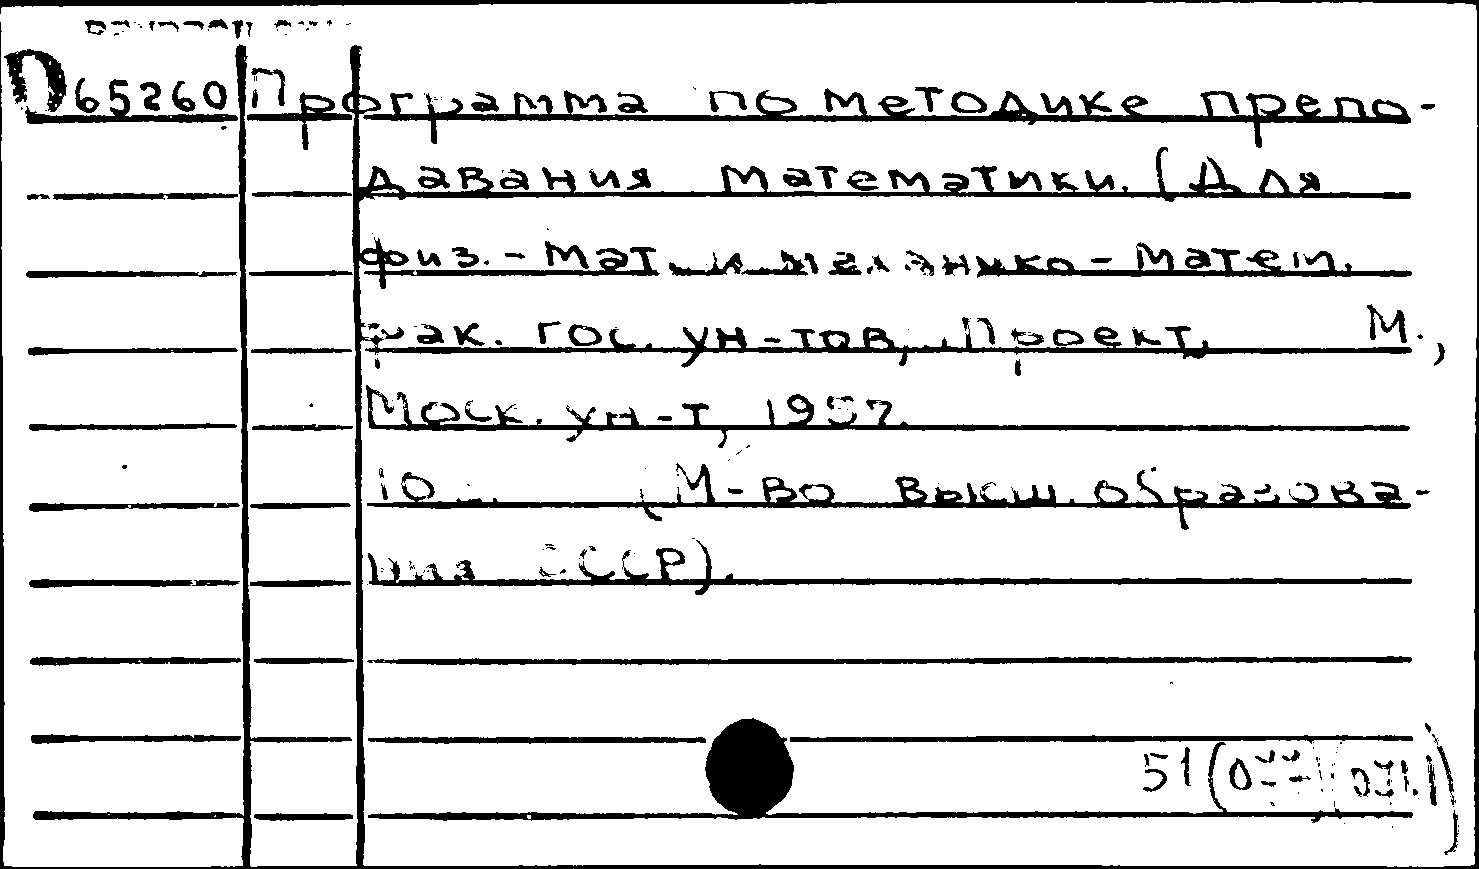 D65260 Программа по методике препо-
давания математики. (Для
физ.-мат. и механико-матем.
фак. гос. ун-тов, Проект, М.,
Моск. ун-т, 1957.
10 (М-во высш. образова-
ния СССР).
51